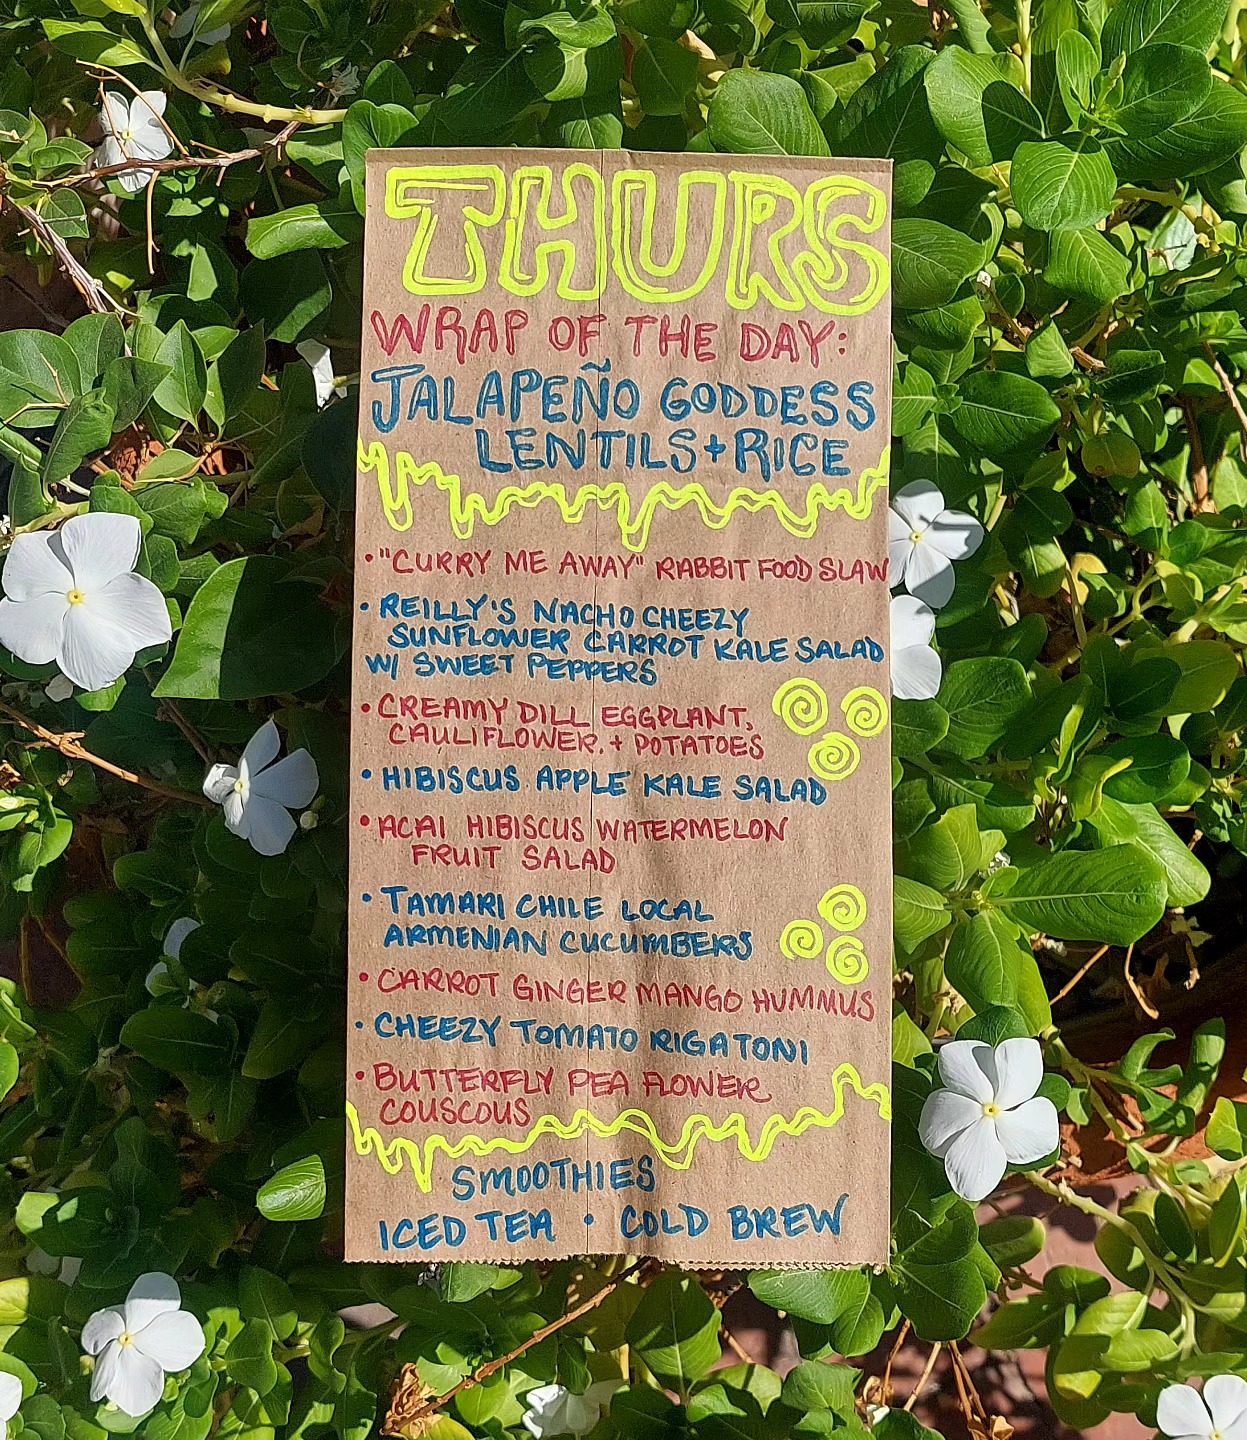 THURS
WRAP OF THE DAY:
JALAPEÑO GODDESS
LENTILS + RICE
• "CURRY ME AWAY" RABBIT FOOD SLAW
• REILLY'S NACHO CHEEZY
SUNFLOWER CARROT KALE SALAD
W/ SWEET PEPPERS
• CREAMY DILL EGGPLANT,
CAULIFLOWER. + POTATOES
• HIBISCUS APPLE KALE SALAD
• ACAI HIBISCUS WATERMELON
FRUIT SALAD
• TAMARI CHILE LOCAL
ARMENIAN CUCUMBERS
• CARROT GINGER MANGO HUMMUS
• CHEEZY TOMATO RIGATONI
• BUTTERFLY PEA FLOWER
COUSCOUS
SMOOTHIES
ICED TEA • COLD BREW